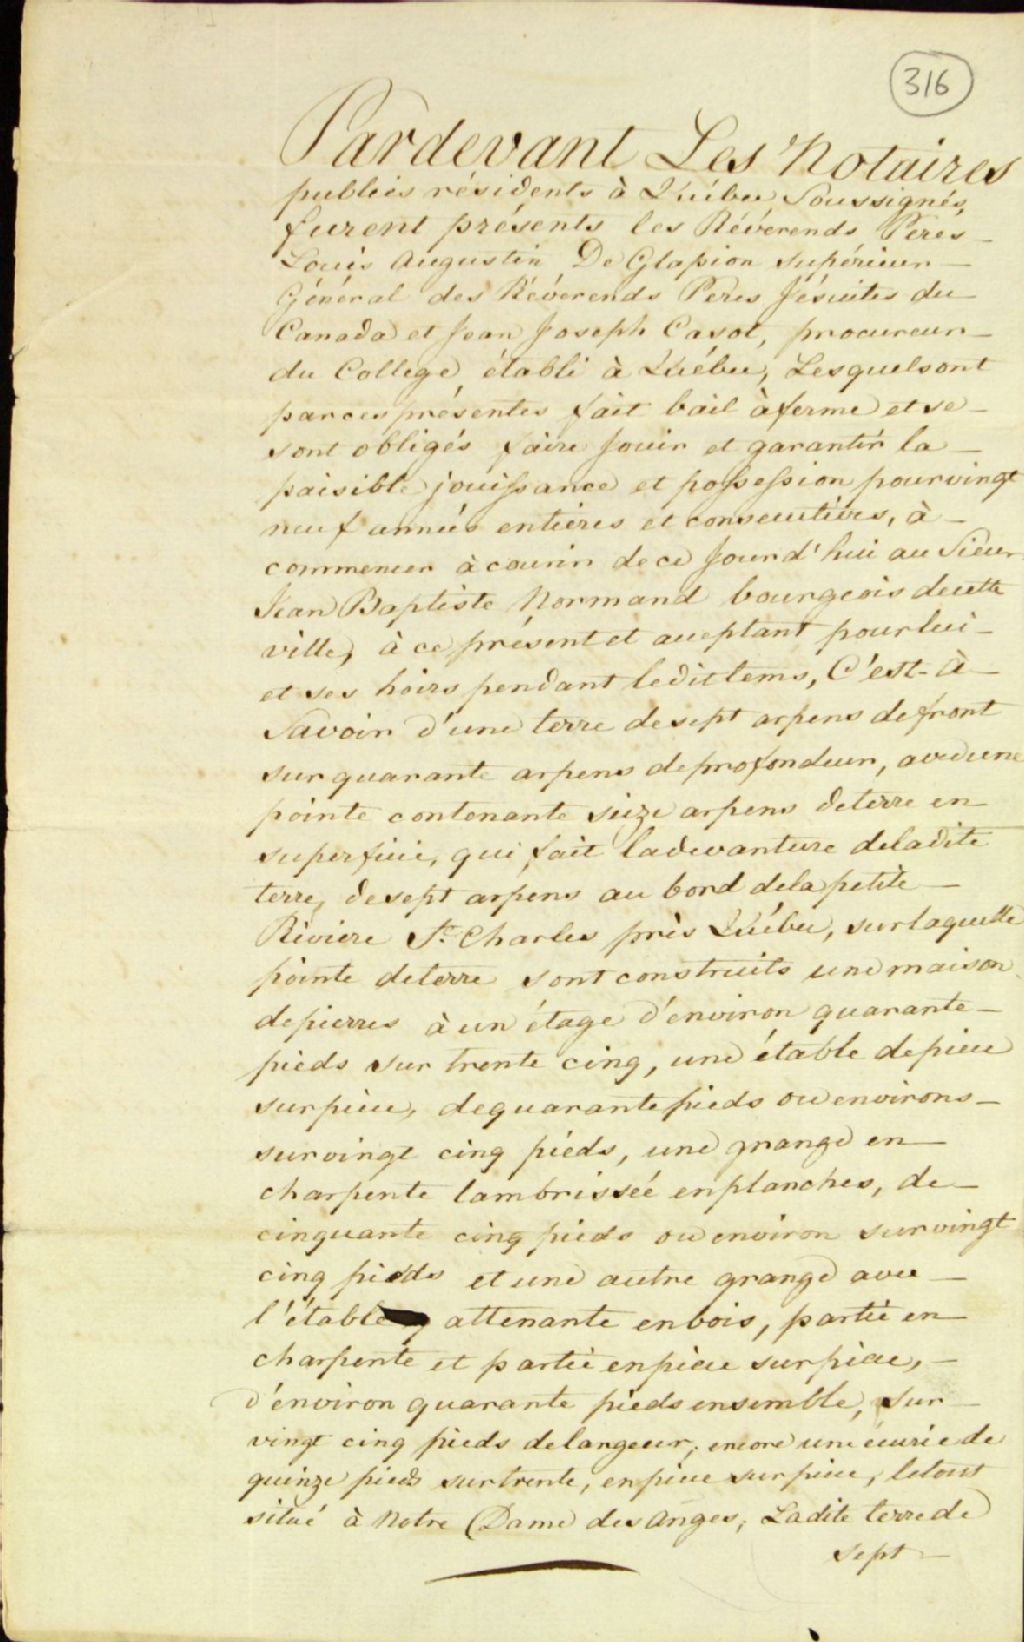 316
Pardevant Les Notaires
publics résidents à Québec Soussignés,
furent présents les Révérends Peres
Louis Augustin De Glapion supérieur
Général des Révérends Peres Jésuites du
Canada et Jean Joseph Casot, procureur
du College établi à Québec, Lesquels ont
par ces présentes fait bail à ferme et se
sont obligés faire Jouir et garantir la
paisible jouissance et possession pour vingt
neuf années entières et consecutives, à
commencer à courir de ce Jourd'hui au Sieur
Jean Baptiste Normand bourgeois de cette
ville, à ce présent et acceptant pour lui
et ses hoirs pendant ledit tems, C'est-à
Savoir d'une terre de sept arpens de front
sur quarante arpens de profondeur, avec une
pointe contenante seize arpens de terre en
superficie, qui fait la devanture de la dite
terre, de sept arpens au bord de la petite
Riviere St. Charles près Québec, sur laquelle
pointe de terre sont construits une maison
de pierres à un étage d'environ quarante
pieds sur trente cinq, une étable de piece
sur piece, de quarante pieds ou environs
sur vingt cinq pieds, une grange en
charpente lambrissée en planches, de
cinquante cinq pieds ou environ sur vingt
cinq pieds et une autre grange avec
l'étable attenante en bois, partie en
charpente et partie en piece sur piece,
d'environ quarante pieds ensemble, sur
vingt cinq pieds de largeur; encore une écurie de
quinze pieds sur trente, en piece sur piece, le tout
situé à Notre Dame des Anges; La dite terre de
sept